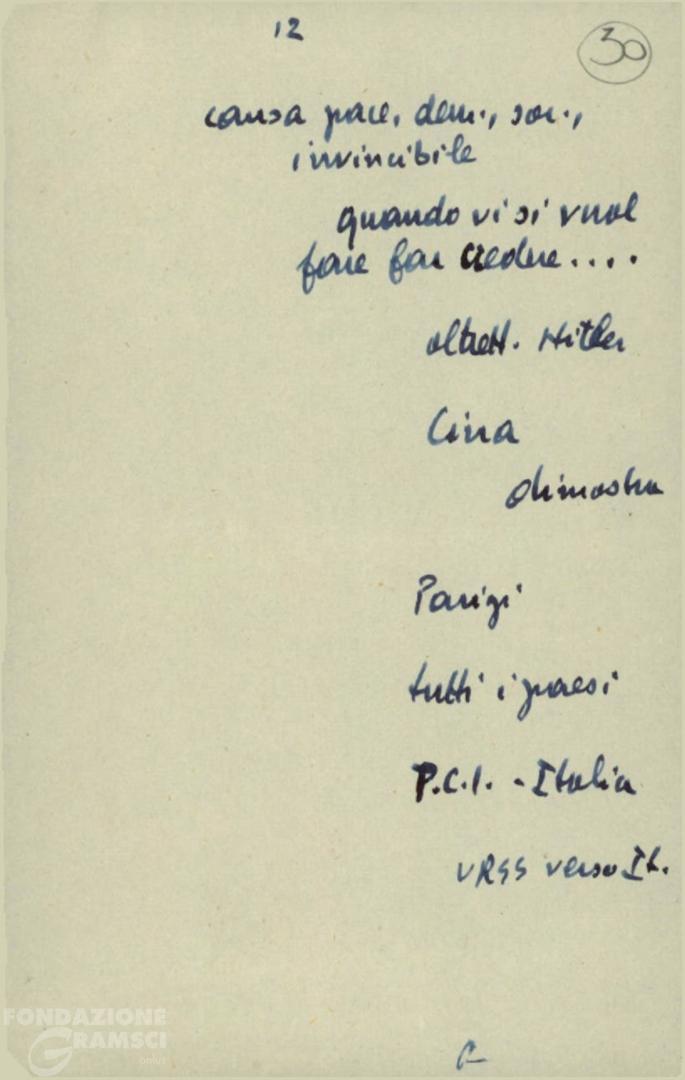 12
30
causa pace, dem., soc.,
invincibile
quando vi si vuol
fare far credere....
oltrett. Hitler
Cina
dimostra
Parigi
tutti i paesi
P.C.I. - Italia
URSS verso It.
FONDAZIONE
GRAMSCI
onlus